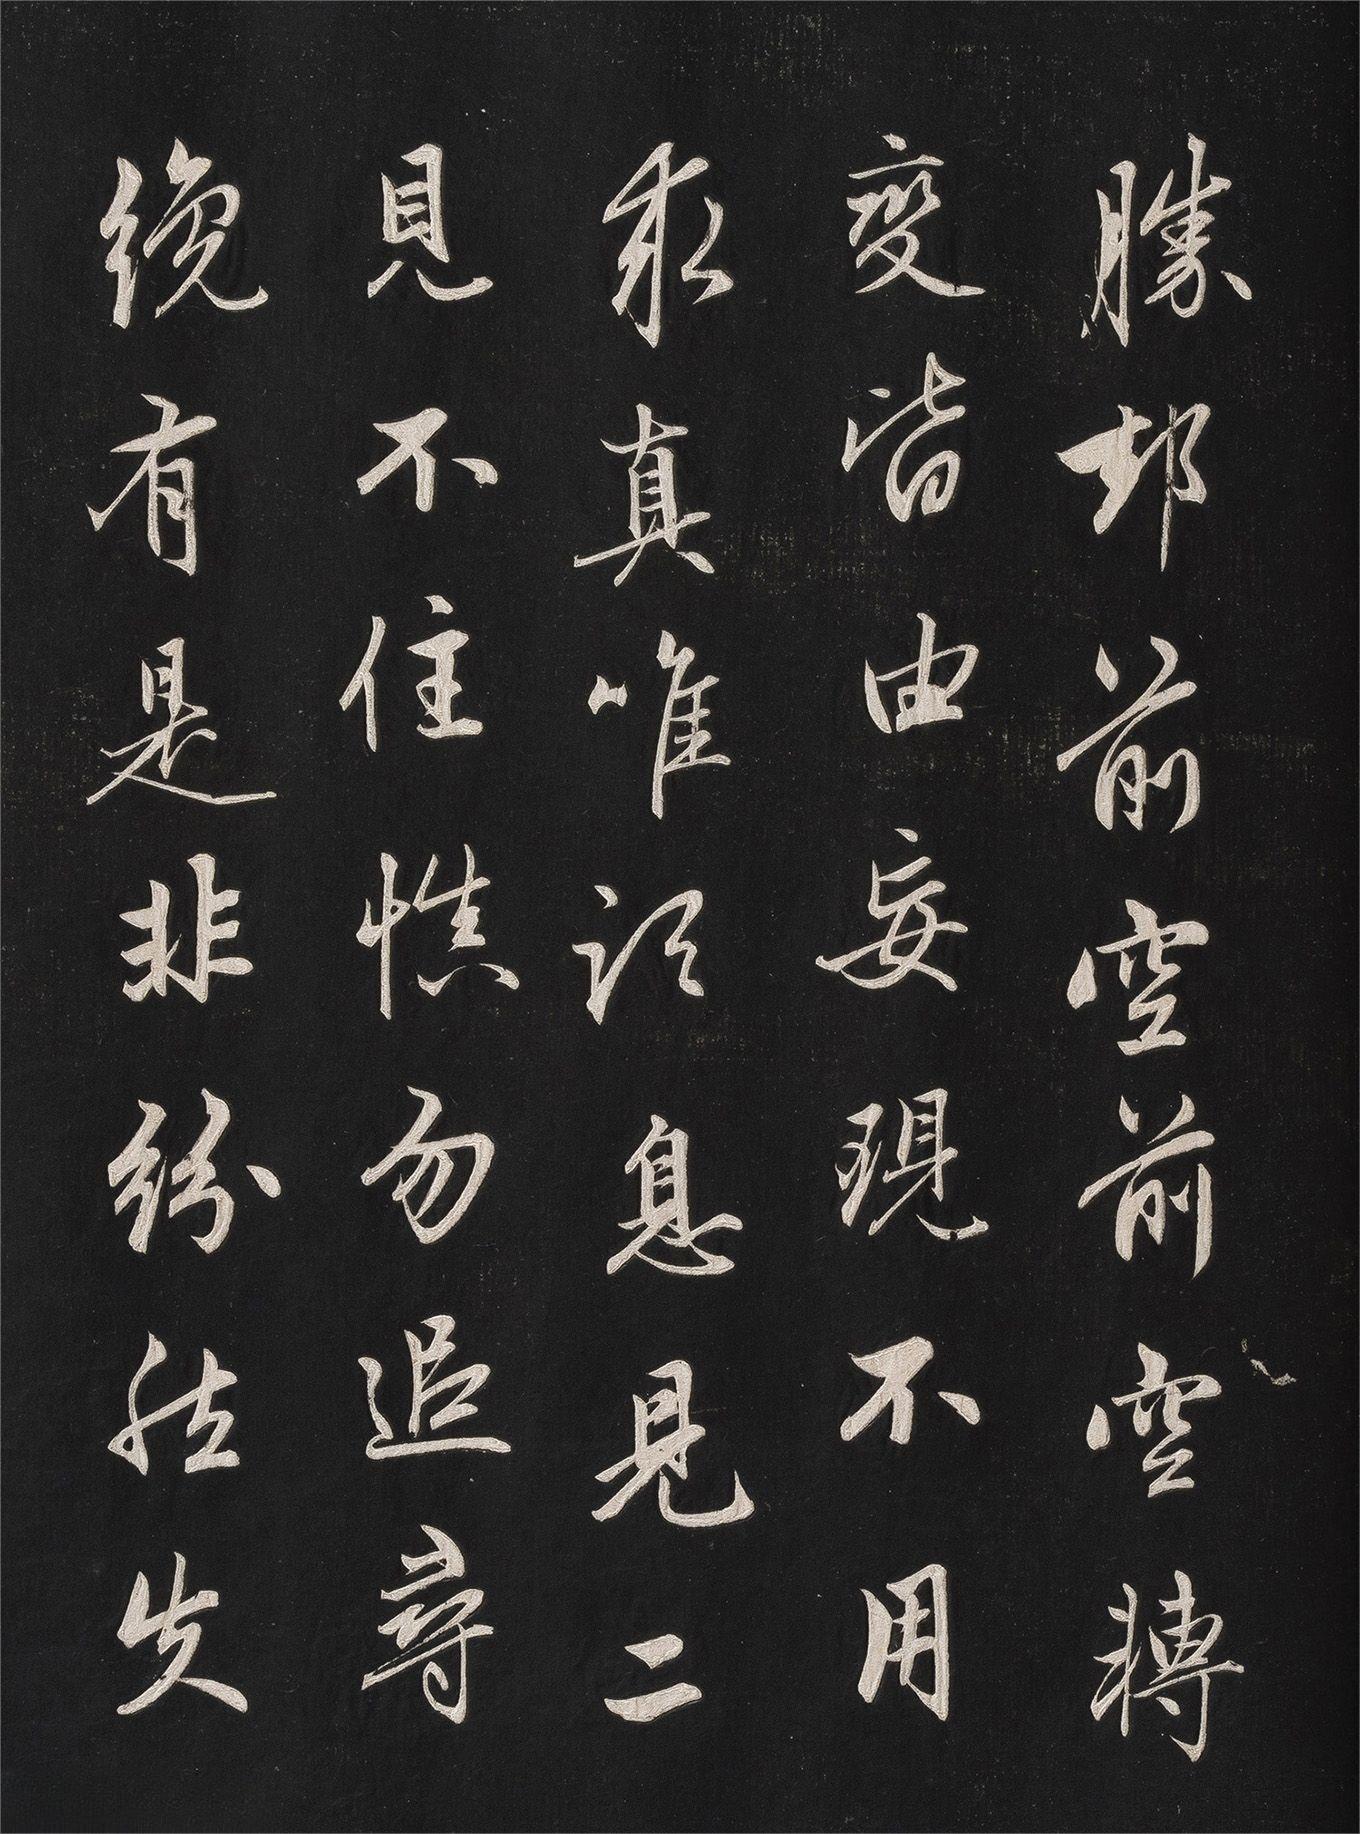 勝却前空前空轉
變皆由妄現不用
求真唯須息見二
見不住慎勿追尋
纔有是非紛然失